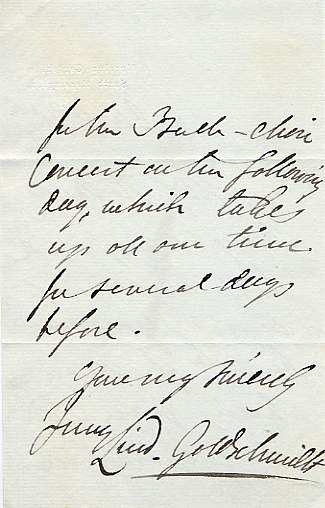 for the Bach-choir
Concert on the following
day, which takes
up all our time
for several days
before.
Yours very sincerely
Jenny
Lind-Goldschmidt